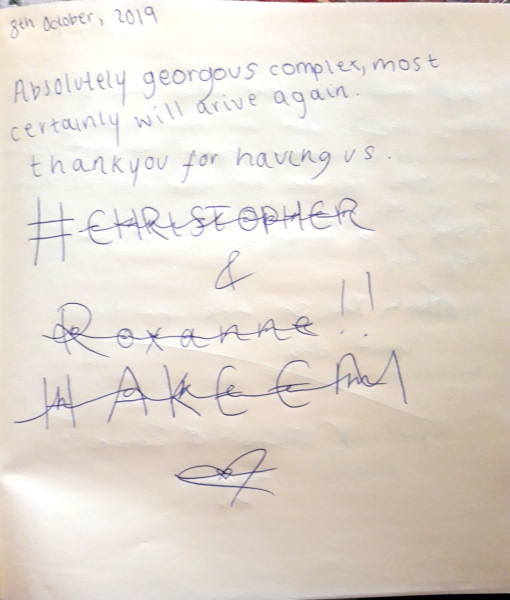 8th October, 2019
Absolutely georgous complex, most
certainly will arive again.
thankyou for having us.
#CHRISTOPHER
&
Roxanne!!
HAKEEM